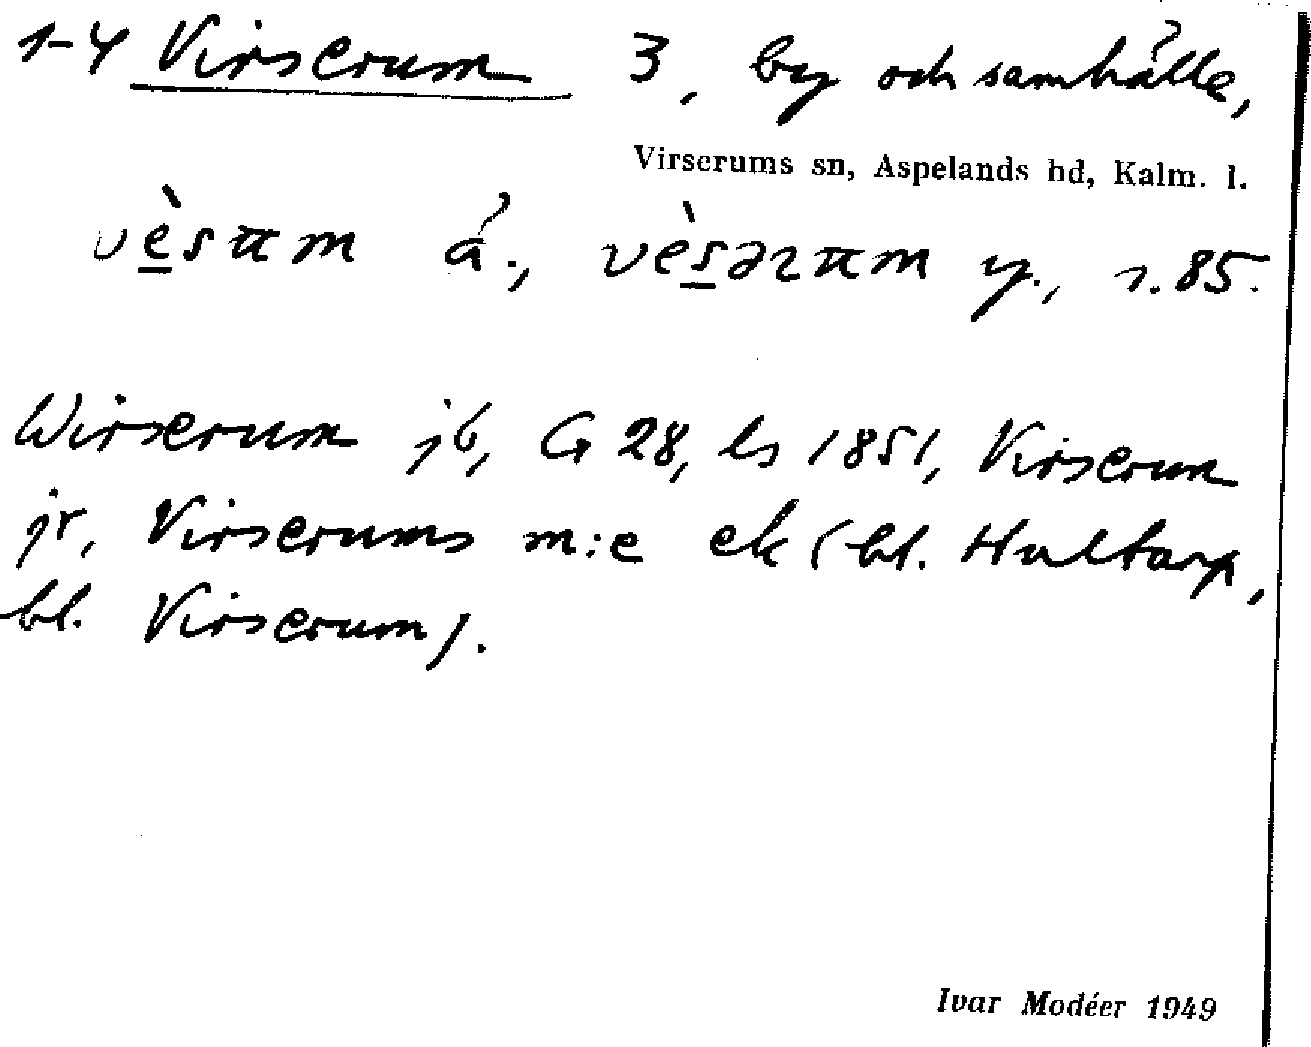 1-4 Virserum 3, by och samhälle,
Virserums sn, Aspelands hd, Kalm. l.
ä., y., s. 85.
Wirserum jb, G 28, ls 1851, Virserum
jr, Virserums m:e ek (bl. Hultarp,
bl. Virserum).
Ivar Modéer 1949